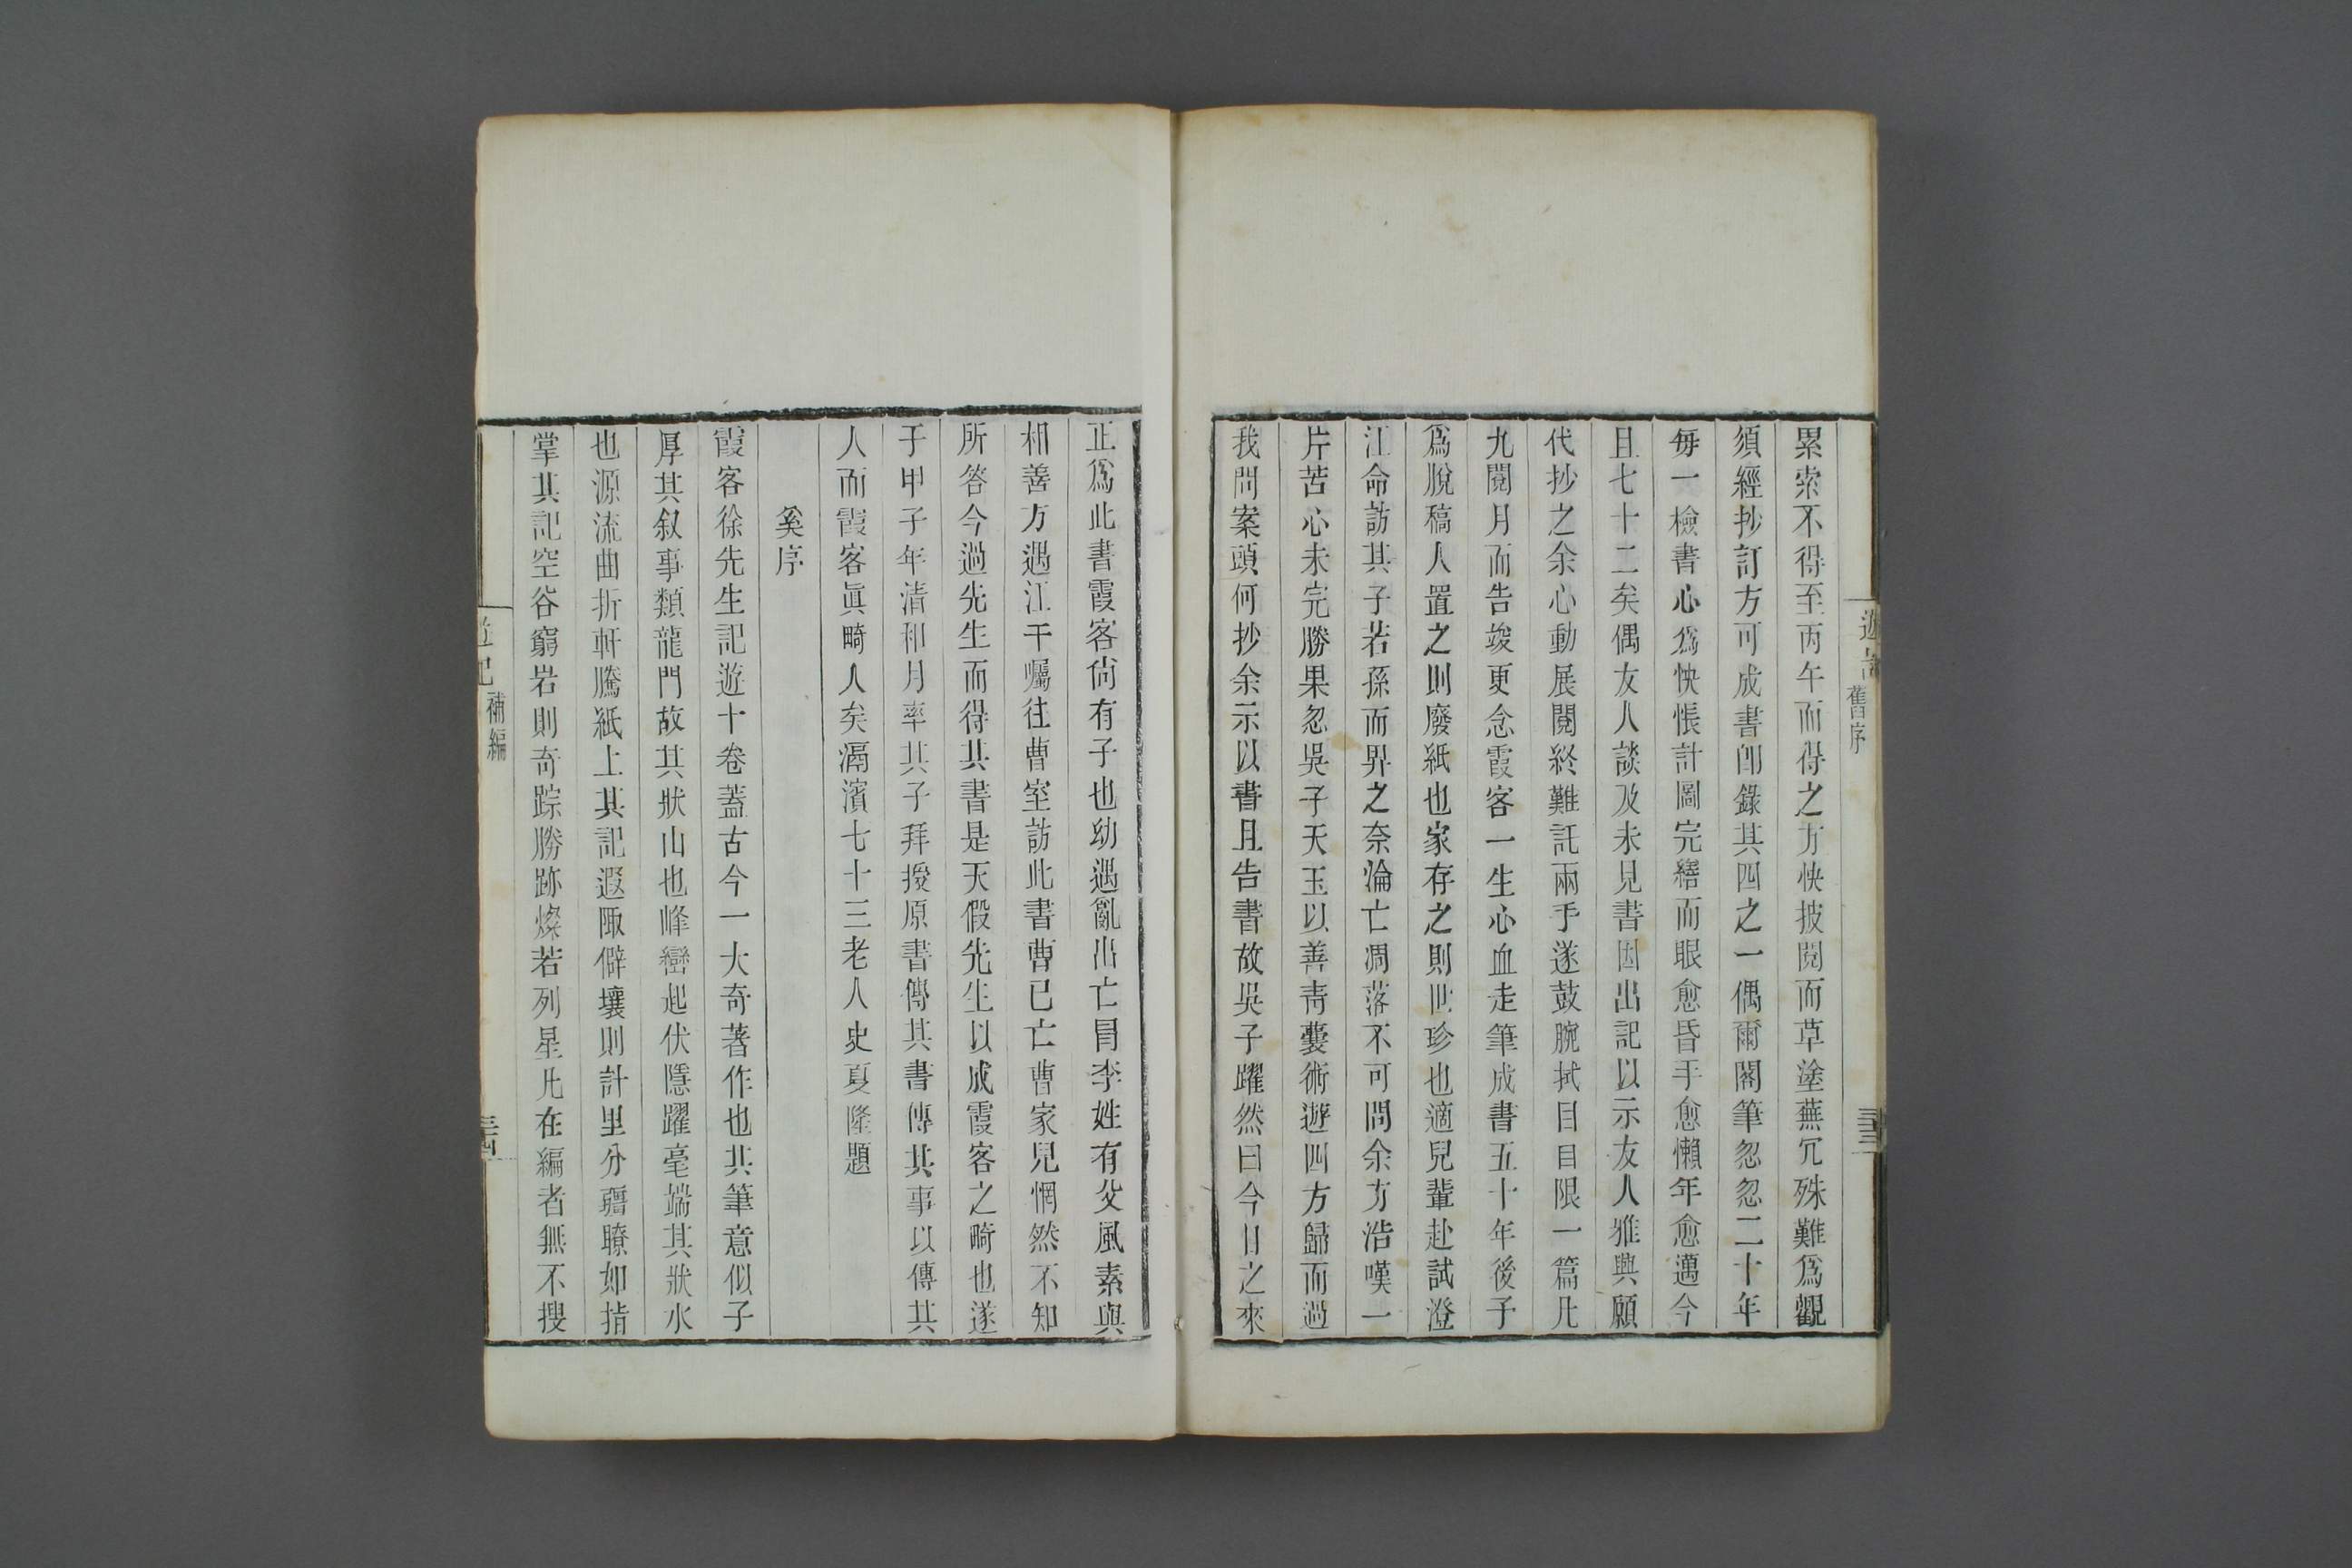 遊記 舊序 三十三
累索不得至丙午而得之方快披閱而草塗蕪冗殊難爲觀
須經抄訂方可成書卽錄其四之一偶爾閣筆忽忽二十年
每一檢書心爲怏悵計圖完繕而眼愈昏手愈懶年愈邁今
且七十二矣偶友人談及未見書因出記以示友人雅興願
代抄之余心動展閱終難託兩手遂鼓腕拭目目限一篇凡
九閱月而告竣更念霞客一生心血走筆成書五十年後予
爲脫稿人置之則廢紙也家存之則世珍也適兒輩赴試澄
江命訪其子若孫而畀之奈淪亡凋落不可問余方浩嘆一
片苦心未完勝果忽吳子天玉以善靑囊術遊四方歸而過
我問案頭何抄余示以書且告書故吳子躍然曰今日之來
正爲此書霞客尙有子也幼遇亂出亡冒李姓有父風素與
相善方遇江干囑往曹室訪此書曹已亡曹家兒惘然不知
所答今過先生而得其書是天假先生以成霞客之畸也遂
于甲子年清和月率其子拜授原書傳其書傳其事以傳其
人而霞客眞畸人矣滆濱七十三老人史夏隆題
奚序
霞客徐先生記遊十卷蓋古今一大奇著作也其筆意似子
厚其叙事類龍門故其狀山也峰巒起伏隱躍毫端其狀水
也源流曲折軒騰紙上其記遐陬僻壤則計里分疆瞭如指
掌其記空谷窮岩則奇踪勝跡燦若列星凡在編者無不搜
遊記 補編 三十四